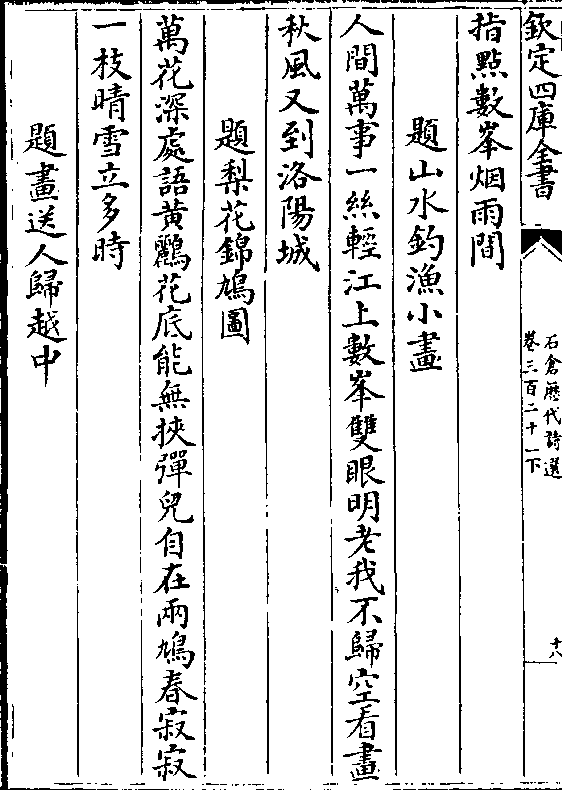 欽定四庫全書
石倉歷代詩選
卷三百二十一下
十八
指點數峯烟雨間
題山水釣漁小畫
人間萬事一絲輕江上數峯雙眼明老我不歸空看畫
秋風又到洛陽城
題梨花錦鳩圖
萬花深處語黃鸝花底能無挾彈兒自在兩鳩春寂寂
一枝晴雪立多時
題畫送人歸越中